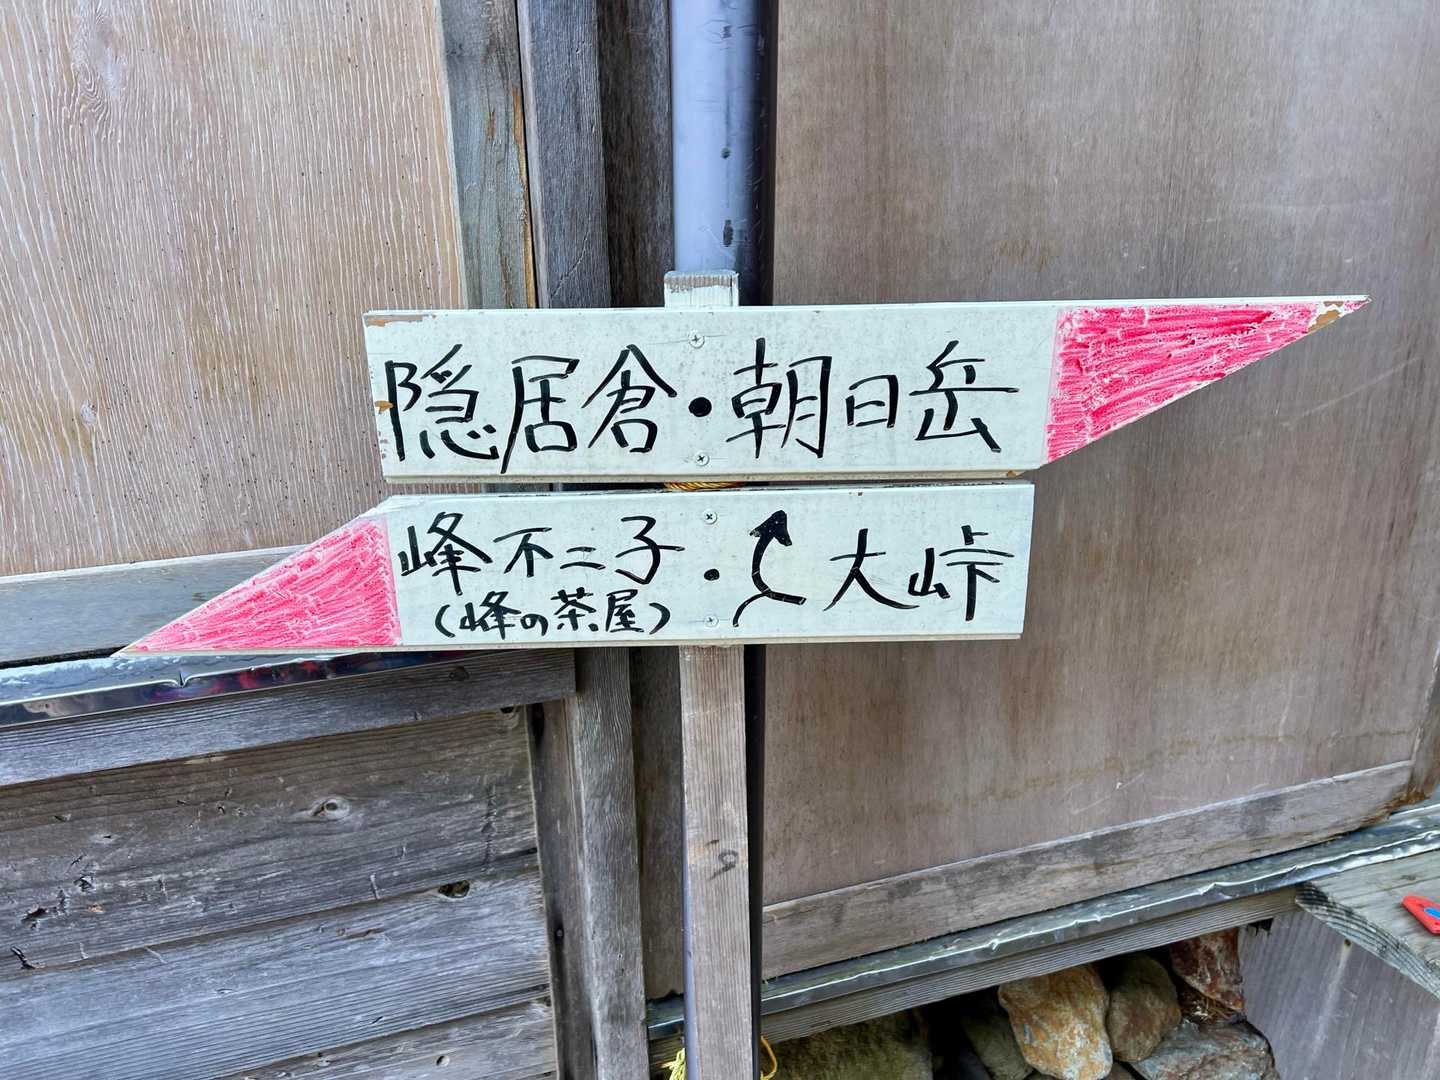 隠居倉・朝日岳
峰不二子・大峠
(峰の茶屋)